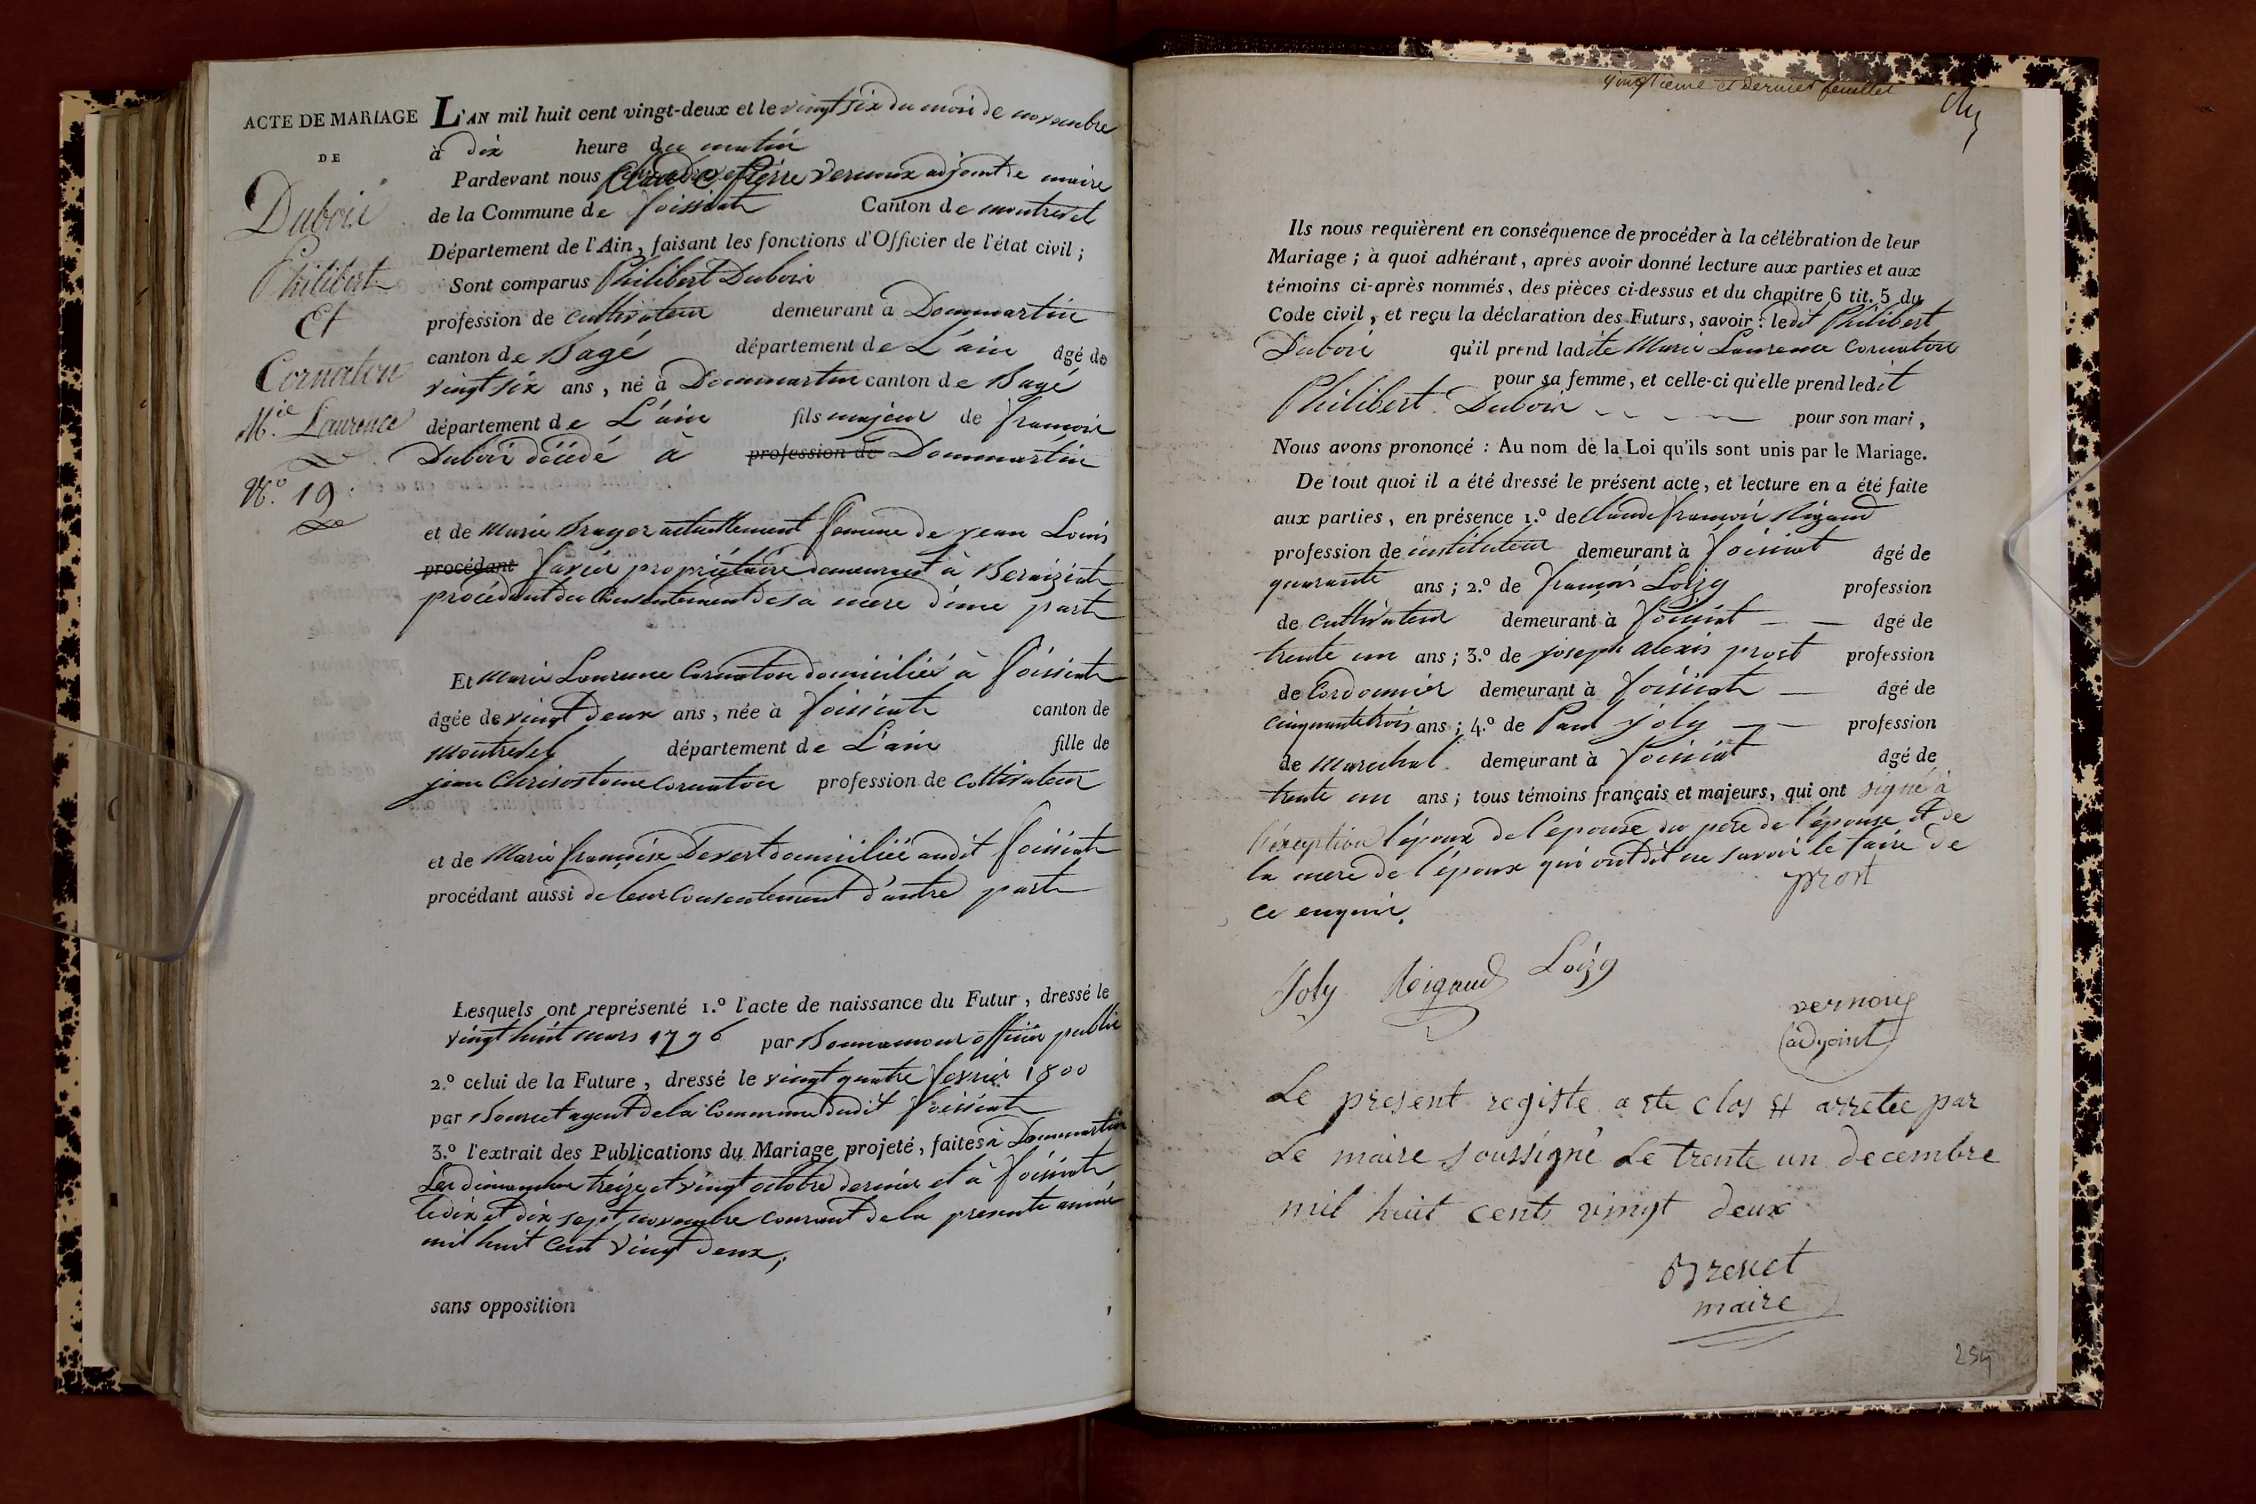 ACTE DE MARIAGE
DE
Dubois
Philibert
Et
Cornaton
M.ie Laurence
N.o 19.
L'AN mil huit cent vingt-deux et le vingt six du mois de novembre
à dix heure du matin
Pardevant nous Claude pierre vernoux adjoint de maire
de la Commune de foissiat Canton de montrevel
Département de l'Ain, faisant les fonctions d'Officier de l'état civil ;
Sont comparus Philibert Dubois
profession de cultivateur demeurant à Dommartin
canton de Bagé département de L'ain âgé de
vingt six ans, né à Dommartin canton de Bagé
département de L'ain fils majeur de francois
Dubois décédé à profession de Dommartin
et de Marie actuellement femme de jean Louis
procédant favier propriétaire demeurant à Beraiziat
procédant du Consentement de sa mere d'une part
Et Marie Laurence Cornaton domiciliée à foissiat
âgée de vingt deux ans, née à foissiat canton de
Montrevel département de L'ain fille de
jean Chrisostome Cornaton profession de Cultivateur
et de Marie françoise Devert domiciliée audit foissiat
procédant aussi de leur Consentement d'autre part
Lesquels ont représenté 1.o l'acte de naissance du Futur, dressé le
vingt huit mars 1796 par Bonnamour officier public
2.o celui de la Future, dressé le vingt quatre fevrier 1800
par agent de la Commune dudit foissiat
3.o l'extrait des Publications du Mariage projeté, faites à Dommartin
Les dimanches treize et vingt octobre dernier et à foissiat
le dix et dix sept novembre courant de la presente année
mil huit Cent vingt deux,
sans opposition
et dernier feuillet
Ils nous requièrent en conséquence de procéder à la célébration de leur
Mariage ; à quoi adhérant, après avoir donné lecture aux parties et aux
témoins ci-après nommés, des pièces ci-dessus et du chapitre 6 tit. 5 du
Code civil, et reçu la déclaration des Futurs, savoir : ledit Philibert
Dubois qu'il prend ladite Marie Laurence Cornaton
pour sa femme, et celle-ci qu'elle prend ledit
Philibert Dubois pour son mari,
Nous avons prononcé : Au nom de la Loi qu'ils sont unis par le Mariage.
De tout quoi il a été dressé le présent acte, et lecture en a été faite
aux parties, en présence 1.o de Claude francois Rigaud
profession de instituteur demeurant à foissiat âgé de
quarante ans ; 2.o de françois Loizy profession
de cultivateur demeurant à foissiat âgé de
trente un ans ; 3.o de joseph alexis prost profession
de Cordonnier demeurant à foissiat âgé de
cinquante trois ans ; 4.o de Paul joly profession
de Marechal demeurant à foissiat âgé de
trente un ans ; tous témoins français et majeurs, qui ont signé à
l'éxception l'époux de l'epouse du pere de l'épouse et de
la mere de l'époux qui ont dit ne savoir le faire de
ce enquis.
prost
Joly Rigaud Loizy
vernoux
adjoint
Le present registe a ete clos et arretee par
Le maire soussigné Le trente un decembre
mil huit cents vingt deux
Brevet
maire
254